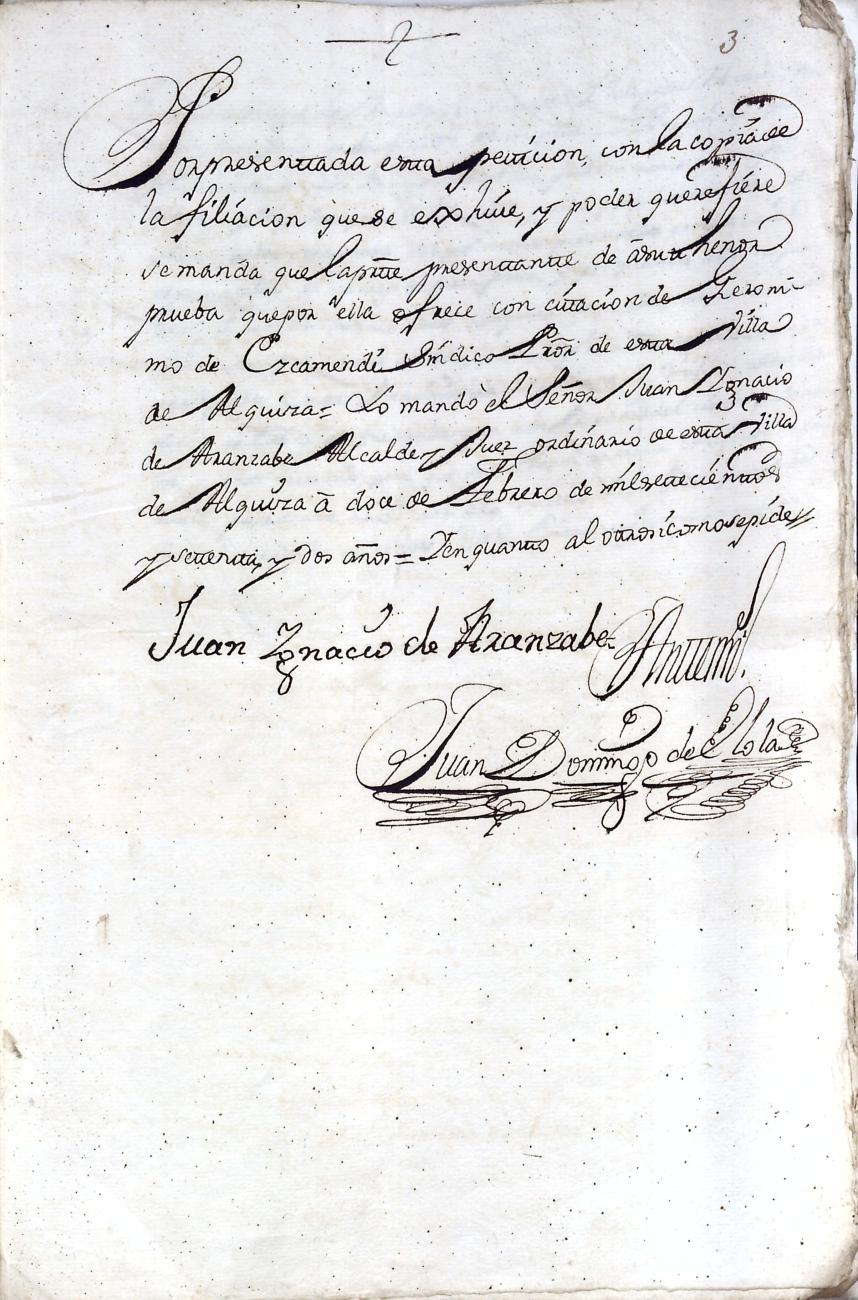 3
Por presenttada estta petticion, con la copia de
la filiacion que se exhive, y poder que refiere
se manda que la partte presenttantte de a su thenor
prueba que por ella ofrece con cittacion de Geroni-
mo de Ezcamendi Sindico Pror̃ de estta Villa
de Alquiza = Lo mandò el Señor Juan Ygnacio
de Aranzabe Alcalde y Juez ordinario de estta Villa
de Alquiza â doce de Febrero de mil settecienttos
y settentta, y dos años = Y en quantto al ottrosi, como se pide //
Juan Ygnacio de Aranzabe Antte mi.
Juan Domingo de Elola